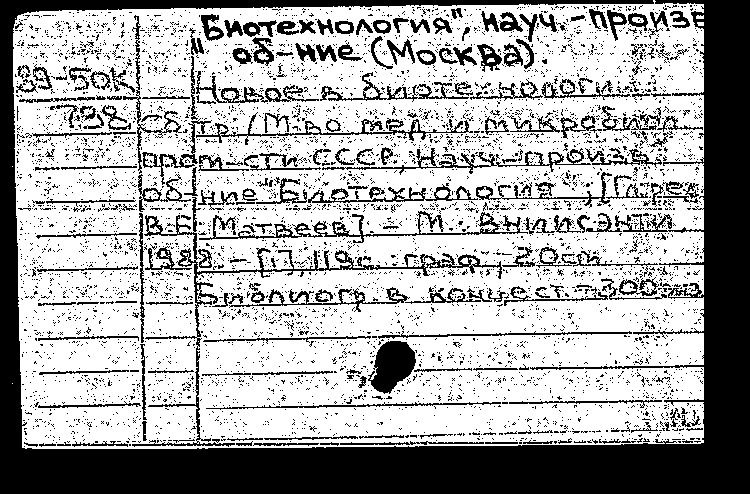 "Биотехнология", науч.-произв
об-ние (Москва).
89-50К Новое в биотехнологии:
798 Сб. тр. / М-во мед. и микробиол.
пром-сти СССР, Науч.-произв.
об-ние "Биотехнология"; [Гл. ред.
В.Е. Матвеев]. - М.: ВНИИСЭНТИ,
1988. - [1], 119 с.: граф.; 20 см
Библиогр. в конце ст. - 300 экз.